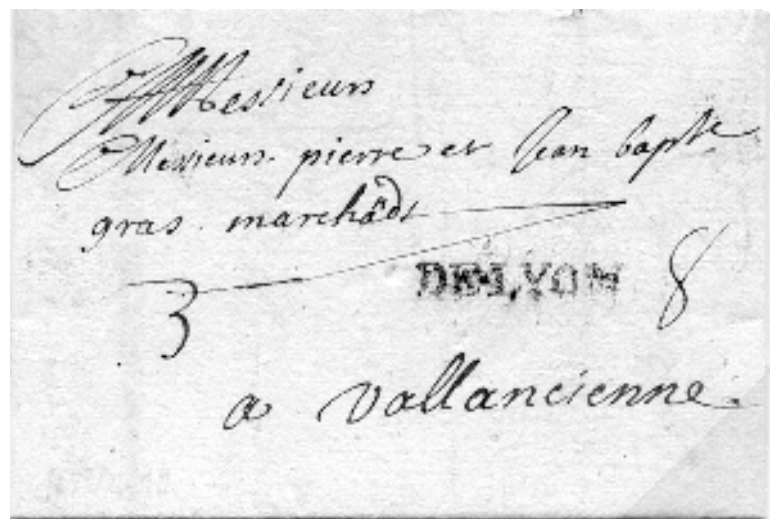 Messieurs
Messieurs pierre et Jean bapte
gras marchâds
DE LYON 8
3
a vallancienne